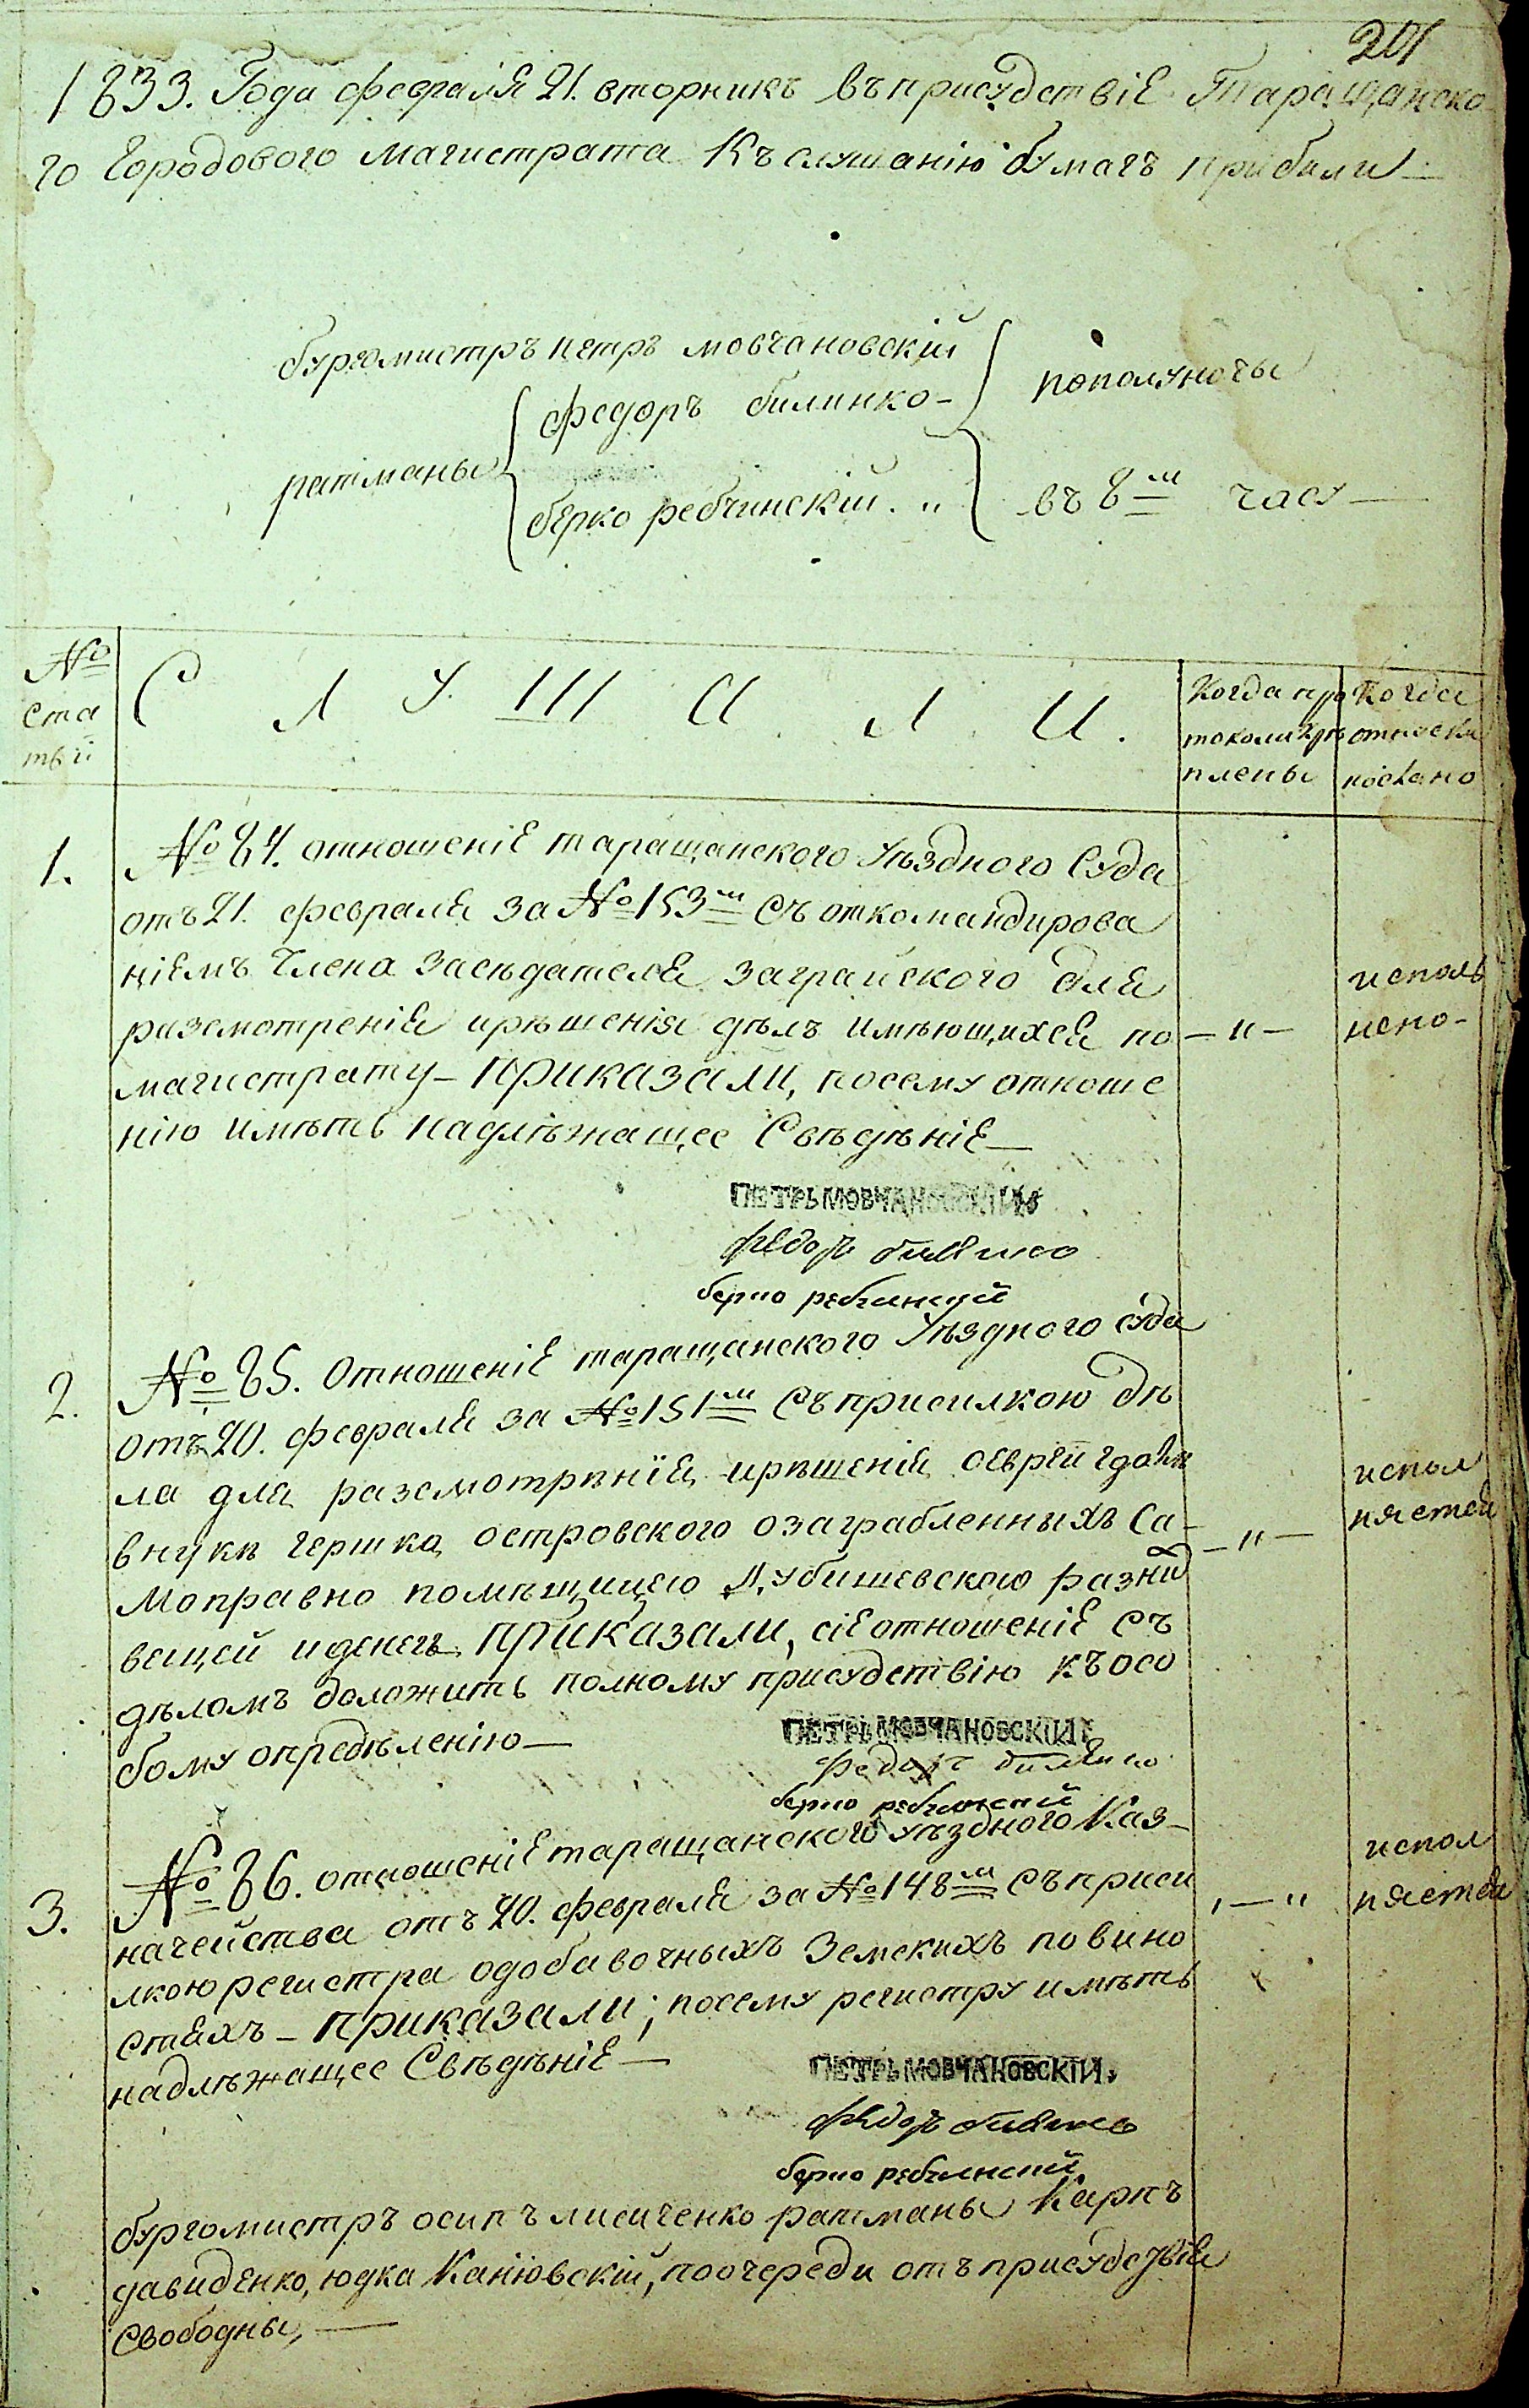 201
1833. Года февраля 21. вторникъ въ присудствіе Таращанско
го Городового магистрата Къ слушанію бумагъ прибыли —
бургомистръ петръ мовчановскій
ратманы
федоръ билинко —
берко ребчинскій. „
пополуночы
въ 8м часу —
№ ста тьй
С Л У Ш А Л И.
Когда про токолы крѣ плены
Когда отпуски послано
1. № 84. отношеніе таращанского Уѣздного Суда
отъ 21. февраля за № 153м Съ откомандирова
ніемъ Члена Засѣдателя заграйского для
разсмотренія ирѣшенія дѣлъ имѣющихся по
магистрату — приказали, посему отноше
нію имѣть надлѣжащее Свѣдѣніе —
— „ —
исполь
нено —
ПЕТРЬ МОВЧАНОВСКІЙ
федоръ билинко
берко ребчинский
2. № 85. Отношеніе таращанского Уѣздного суда
отъ 20. февраля за № 151м Съ присилкою дѣ
ла для разсмотрѣнія ирѣшенія оеврей
внукѣ гершка островского озаграбленныхъ Са —
моправно помѣщицею Дубишевскою разній
вещей иденегъ приказали, сіе отношеніе Съ
дѣломъ доложить полному присудствію къ осо
бому опредѣленію —
— „ —
испол
няется
ПЕТРЬ МОВЧАНОВСКІЙ
федоръ билинко
берко ребчинский
3. № 86. отношеніе таращанского уѣздного Каз —
начейства отъ 20. февраля за № 148м Съ приси
лкою регистра одобавочныхъ Земскихъ повино
стяхъ — приказали; посему регистру имѣть
надлѣжащее Свѣдѣніе —
, — „
испол
няется
ПЕТРЬ МОВЧАНОВСКІЙ,
федоръ билинко
берко ребчинский
бургомистръ осипъ лисиченко ратманы Карпъ
давиденко, юдка Каніовскій, поочереди отъ присудствія
Свободны, —